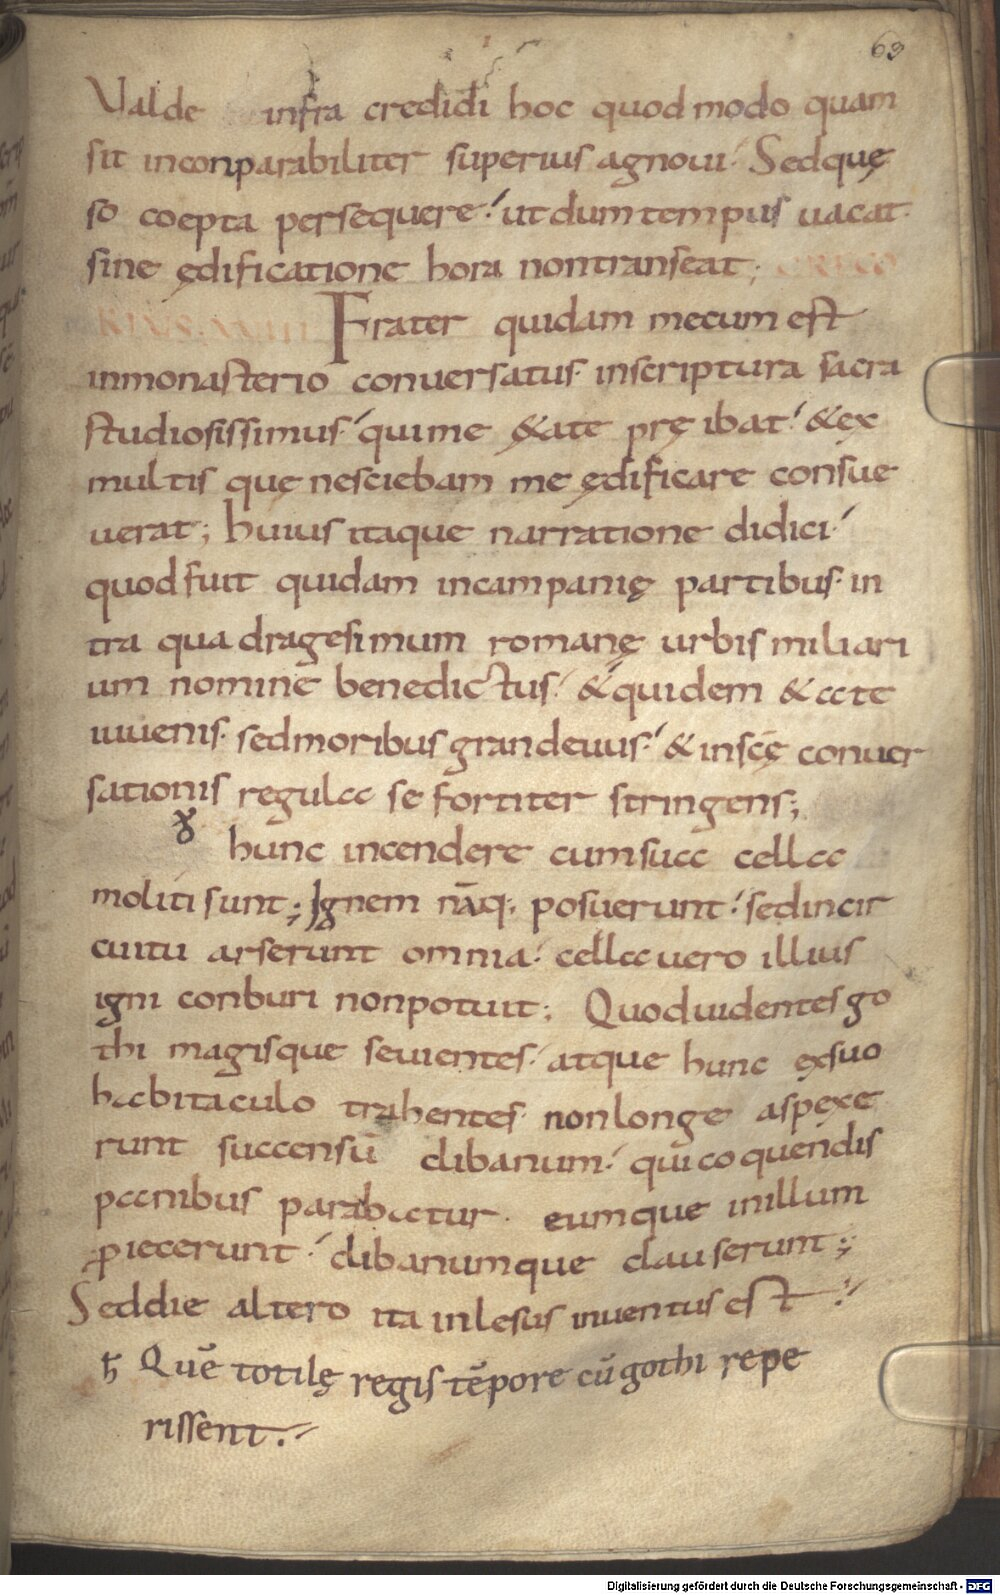 69
Valde infra credidi hoc quod modo quam
sit inconparabiliter superius agnoui. Sed quę
so coepta persequere. ut dum tempus uacat.
sine ędificatione hora non transeat; GREGO
RIUS. XVIII Frater quidam mecum est
in monasterio conuersatus. in scriptura sacra
studiosissimus. qui me &ate prę ibat. & ex
multis quę nesciebam me ędificare consue
uerat; huius itaque narratione didici.
quod fuit quidam in campanię partibus. in
tra quadragesimum romanę urbis miliari
um nomine benedictus. & quidem &ate
iuuenis. sed moribus grandeuus. & in scę conuer
sationis regula se fortiter stringens;
hunc incendere cum sua cella
moliti sunt; Ignem nāq; posuerunt. sed in cir
cuitu arserunt omnia. cella uero illius
igni conburi non potuit; Quod uidentes go
thi magisque seuientes. atque hunc ex suo
habitaculo trahentes. non longe aspexe
runt succensū clibanum. qui coquendis
panibus parabatur. eumque in illum
ꝓiecerunt. clibanumque clauserunt;
Sed die altero ita inlesus inuentus est.
ħ Quē totilę regis tēpore cū gothi repe
rissent.
Digitalisierung gefördert durch die Deutsche Forschungsgemeinschaft - DFG